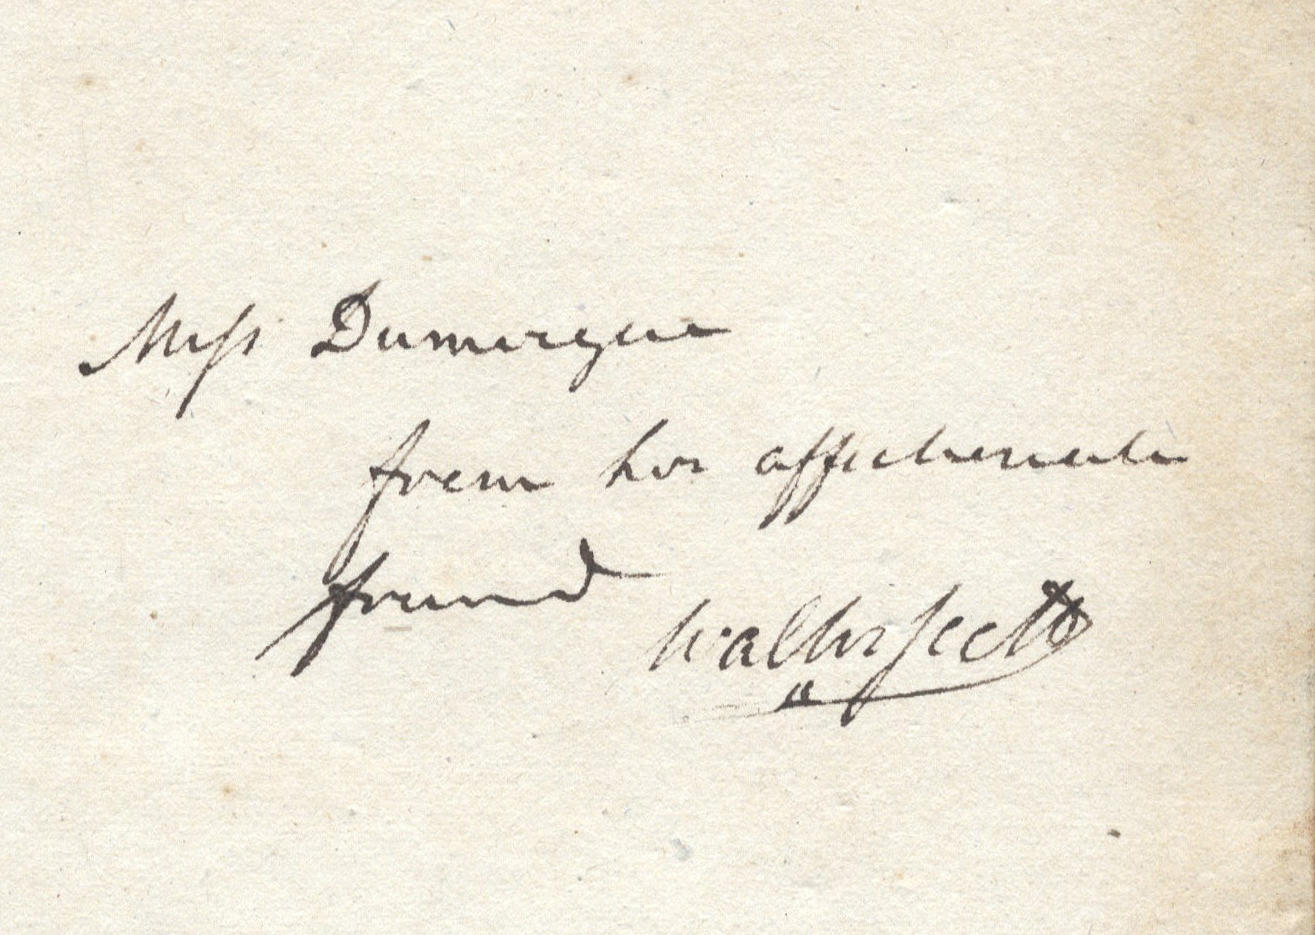 Miss Dumergue
from her affectionate
friend Walter Scott